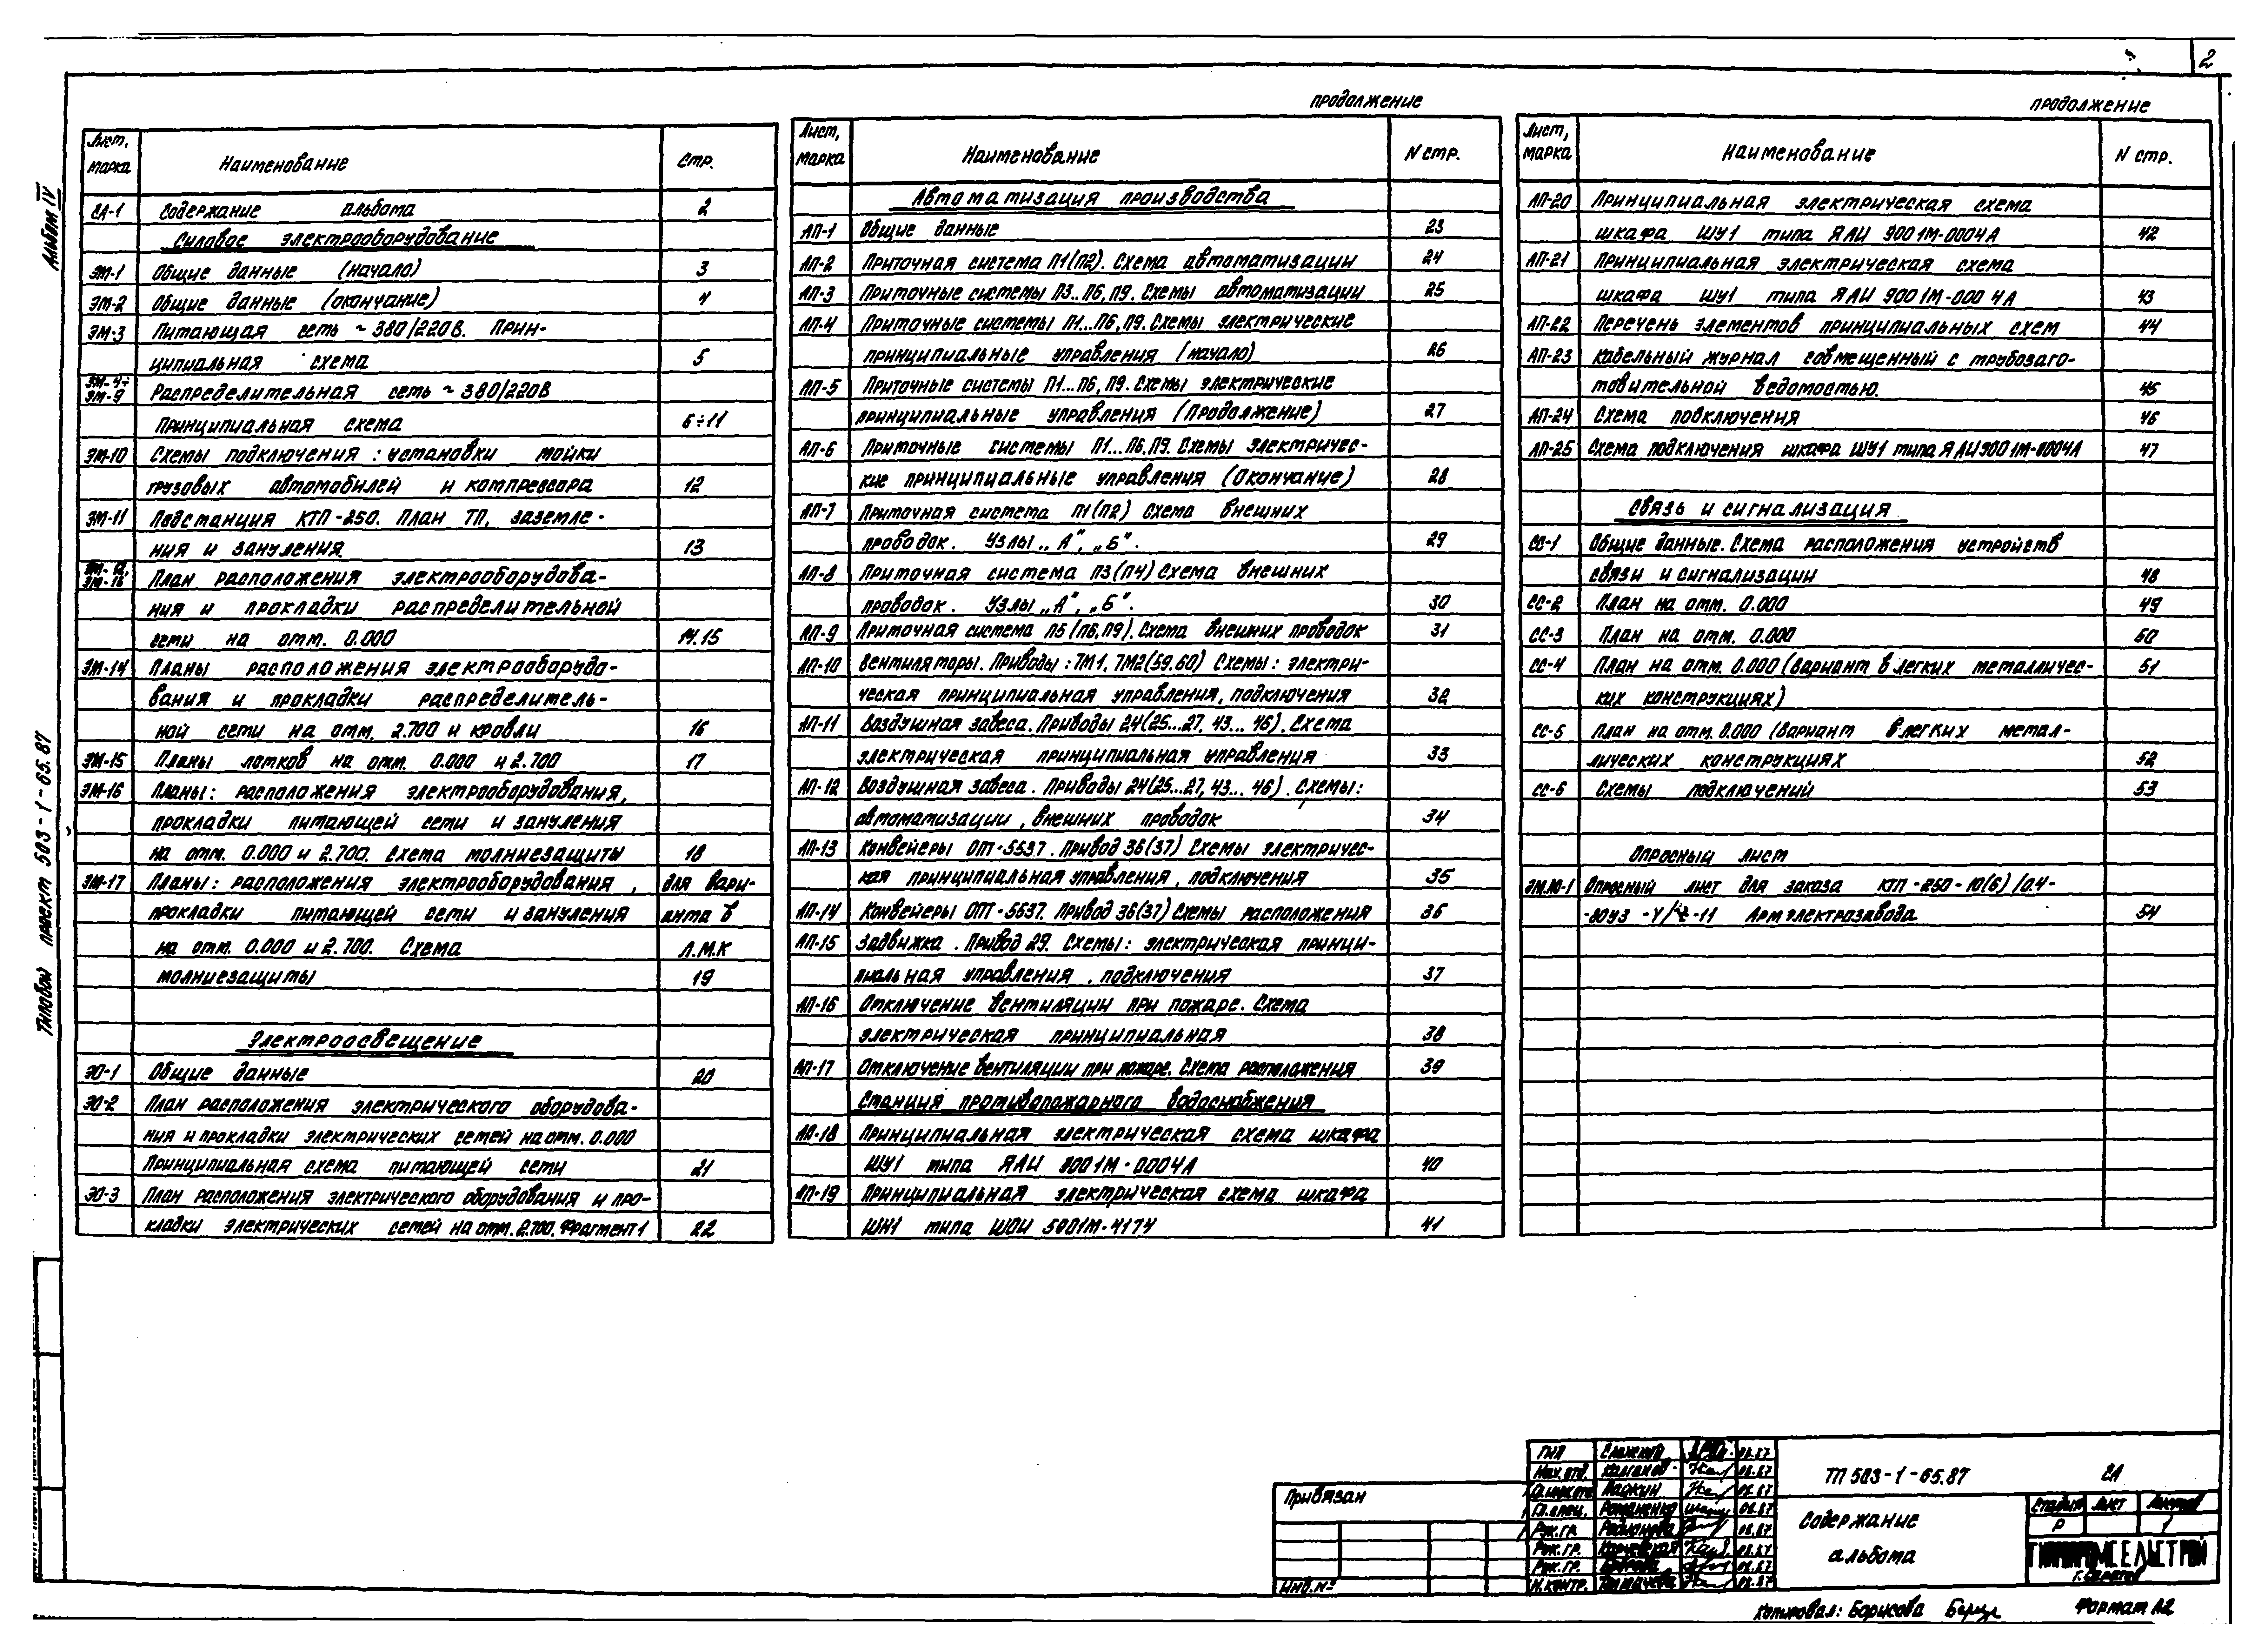 2
Альбом IV
Типовой проект 503-1-65.87
Лист, марка
Наименование
Стр.
СА-1 Содержание альбома 2
Силовое электрооборудование
ЭМ-1 Общие данные (начало) 3
ЭМ-2 Общие данные (окончание) 4
ЭМ-3 Питающая сеть ~380/220В. Прин-
ципиальная схема 5
ЭМ-4÷ ЭМ-9 Распределительная сеть ~380/220В
Принципиальная схема 6÷11
ЭМ-10 Схемы подключения: установки мойки
грузовых автомобилей и компрессора 12
ЭМ-11 Подстанция КТП-250. План ТП, заземле-
ния и зануления. 13
План расположения электрооборудова-
ния и прокладки распределительной
сети на отм. 0.000 14.15
ЭМ-14 Планы расположения электрооборудо-
вания и прокладки распределитель-
ной сети на отм. 2.700 и кровли 16
ЭМ-15 Планы лотков на отм. 0.000 и 2.700 17
ЭМ-16 Планы: расположения электрооборудования,
прокладки питающей сети и зануления
на отм. 0.000 и 2.700. Схема молниезащиты 18
ЭМ-17 Планы: расположения электрооборудования, для вари-
прокладки питающей сети и зануления анта в
на отм. 0.000 и 2.700. Схема Л.М.К
молниезащиты 19
Электроосвещение
ЭО-1 Общие данные 20
ЭО-2 План расположения электрического оборудова-
ния и прокладки электрических сетей на отм. 0.000
Принципиальная схема питающей сети 21
ЭО-3 План расположения электрического оборудования и про-
кладки электрических сетей на отм. 2.700. Фрагмент 1 22
продолжение
Лист, марка
Наименование
N стр.
Автоматизация производства
АП-1 Общие данные 23
АП-2 Приточная система П1(П2). Схема автоматизации 24
АП-3 Приточные системы П3..П6, П9. Схемы автоматизации 25
АП-4 Приточные системы П1...П6, П9. Схемы электрические
принципиальные управления (начало) 26
АП-5 Приточные системы П1...П6, П9. Схемы электрические
принципиальные управления (Продолжение) 27
АП-6 Приточные системы П1...П6, П9. Схемы электричес-
кие принципиальные управления (Окончание) 28
АП-7 Приточная система П1(П2) Схема внешних
проводок. Узлы „А", „Б". 29
АП-8 Приточная система П3(П4) Схема внешних
проводок. Узлы „А", „Б". 30
АП-9 Приточная система П5 (П6, П9). Схема внешних проводок 31
АП-10 Вентиляторы. Приводы: 7М1, 7М2(59.60) Схемы: электри-
ческая принципиальная управления, подключения 32
АП-11 Воздушная завеса. Приводы 24(25...27, 43...46). Схема
электрическая принципиальная управления 33
АП-12 Воздушная завеса. Приводы 24(25...27, 43...46). Схемы:
автоматизации, внешних проводок 34
АП-13 Конвейеры ОПТ-5537. Привод 36(37) Схемы электричес-
кая принципиальная управления, подключения 35
АП-14 Конвейеры ОПТ-5537. Привод 36(37) Схемы расположения 36
АП-15 Задвижка. Привод 29. Схемы: электрическая принци-
пиальная управления, подключения 37
АП-16 Отключение вентиляции при пожаре. Схема
электрическая принципиальная 38
АП-17 Отключение вентиляции при пожаре. Схема расположения 39
Станция противопожарного водоснабжения
АП-18 Принципиальная электрическая схема шкафа
ШУ1 типа ЯАИ 9001М-0004А 40
АП-19 Принципиальная электрическая схема шкафа
ШН1 типа ШОИ 5001М-4174 41
продолжение
Лист, марка
Наименование
N стр.
АП-20 Принципиальная электрическая схема
шкафа ШУ1 типа ЯАИ 9001М-0004А 42
АП-21 Принципиальная электрическая схема
шкафа ШУ1 типа ЯАИ 9001М-0004А 43
АП-22 Перечень элементов принципиальных схем 44
АП-23 Кабельный журнал совмещенный с трубозаго-
товительной ведомостью. 45
АП-24 Схема подключения 46
АП-25 Схема подключения шкафа ШУ1 типа ЯАИ9001М-0004А 47
Связь и сигнализация
СС-1 Общие данные. Схема расположения устройств
связи и сигнализации 48
СС-2 План на отм. 0.000 49
СС-3 План на отм. 0.000 50
СС-4 План на отм. 0.000 (вариант в легких металличес- 51
ких конструкциях)
СС-5 План на отм. 0.000 (Вариант в легких метал-
лических конструкциях 52
СС-6 Схемы подключений 53
Опросный лист
Опросный лист для заказа КТП-250-10(6)/0.4-
Армэлектрозавода 54
Привязан
Инв.№
ГИП 08.87
Нач. отд. Калганов 08.87
08.87
Романенко 08.87
Рук.гр. Родионова 08.87
Рук.гр. 08.87
Рук.гр. 08.87
Н.контр. 08.87
ТП 503-1-65.87 СА
Содержание
альбома
Стадия Лист Листов
Р 1
ГИПРОПРОМСЕЛЬСТРОЙ
г. Саратов
Копировал: Борисова
Формат А2